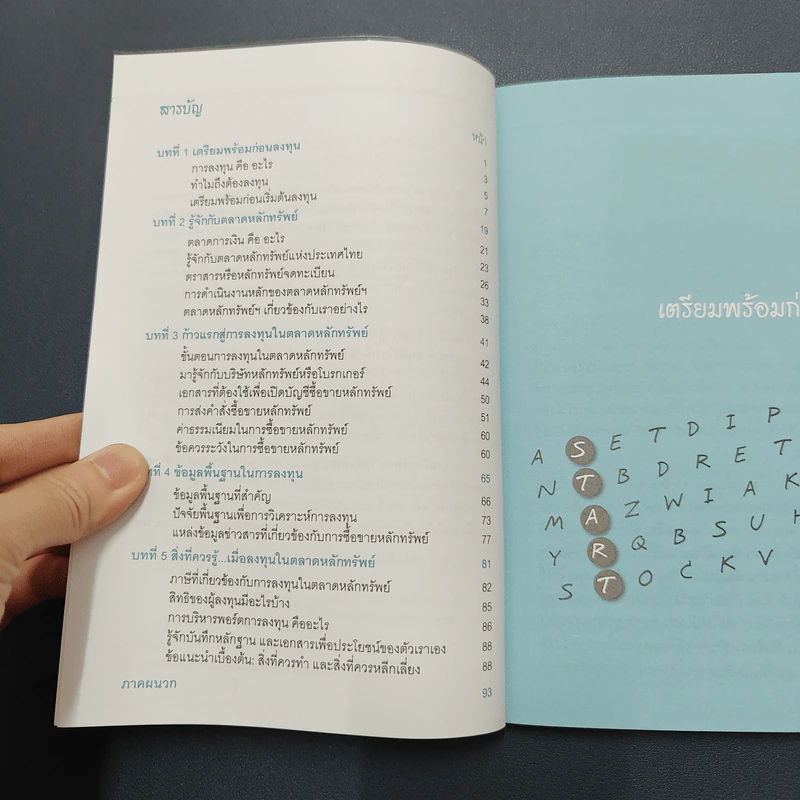 สารบัญ
หน้า
บทที่ 1 เตรียมพร้อมก่อนลงทุน 1
การลงทุน คือ อะไร 3
ทำไมถึงต้องลงทุน 5
เตรียมพร้อมก่อนเริ่มต้นลงทุน 7
บทที่ 2 รู้จักกับตลาดหลักทรัพย์ 19
ตลาดการเงิน คือ อะไร 21
รู้จักกับตลาดหลักทรัพย์แห่งประเทศไทย 23
ตราสารหรือหลักทรัพย์จดทะเบียน 26
การดำเนินงานหลักของตลาดหลักทรัพย์ฯ 33
ตลาดหลักทรัพย์ฯ เกี่ยวข้องกับเราอย่างไร 38
บทที่ 3 ก้าวแรกสู่การลงทุนในตลาดหลักทรัพย์ 41
ขั้นตอนการลงทุนในตลาดหลักทรัพย์ 42
มารู้จักกับบริษัทหลักทรัพย์หรือโบรกเกอร์ 44
เอกสารที่ต้องใช้เพื่อเปิดบัญชีซื้อขายหลักทรัพย์ 50
การส่งคำสั่งซื้อขายหลักทรัพย์ 51
ค่าธรรมเนียมในการซื้อขายหลักทรัพย์ 60
ข้อควรระวังในการซื้อขายหลักทรัพย์ 60
ที่ 4 ข้อมูลพื้นฐานในการลงทุน 65
ข้อมูลพื้นฐานที่สำคัญ 66
ปัจจัยพื้นฐานเพื่อการวิเคราะห์การลงทุน 73
แหล่งข้อมูลข่าวสารที่เกี่ยวข้องกับการซื้อขายหลักทรัพย์ 77
บทที่ 5 สิ่งที่ควรรู้...เมื่อลงทุนในตลาดหลักทรัพย์ 81
ภาษีที่เกี่ยวข้องกับการลงทุนในตลาดหลักทรัพย์ 82
สิทธิของผู้ลงทุนมีอะไรบ้าง 85
การบริหารพอร์ตการลงทุน คืออะไร 86
รู้จักบันทึกหลักฐาน และเอกสารเพื่อประโยชน์ของตัวเราเอง 88
ข้อแนะนำเบื้องต้น: สิ่งที่ควรทำ และสิ่งที่ควรหลีกเลี่ยง 88
ภาคผนวก 93
เตรียมพร้อมก่
A S E T D I P
N T B D R E T
M A Z W I A K
Y R Q B S U
S T O C K V